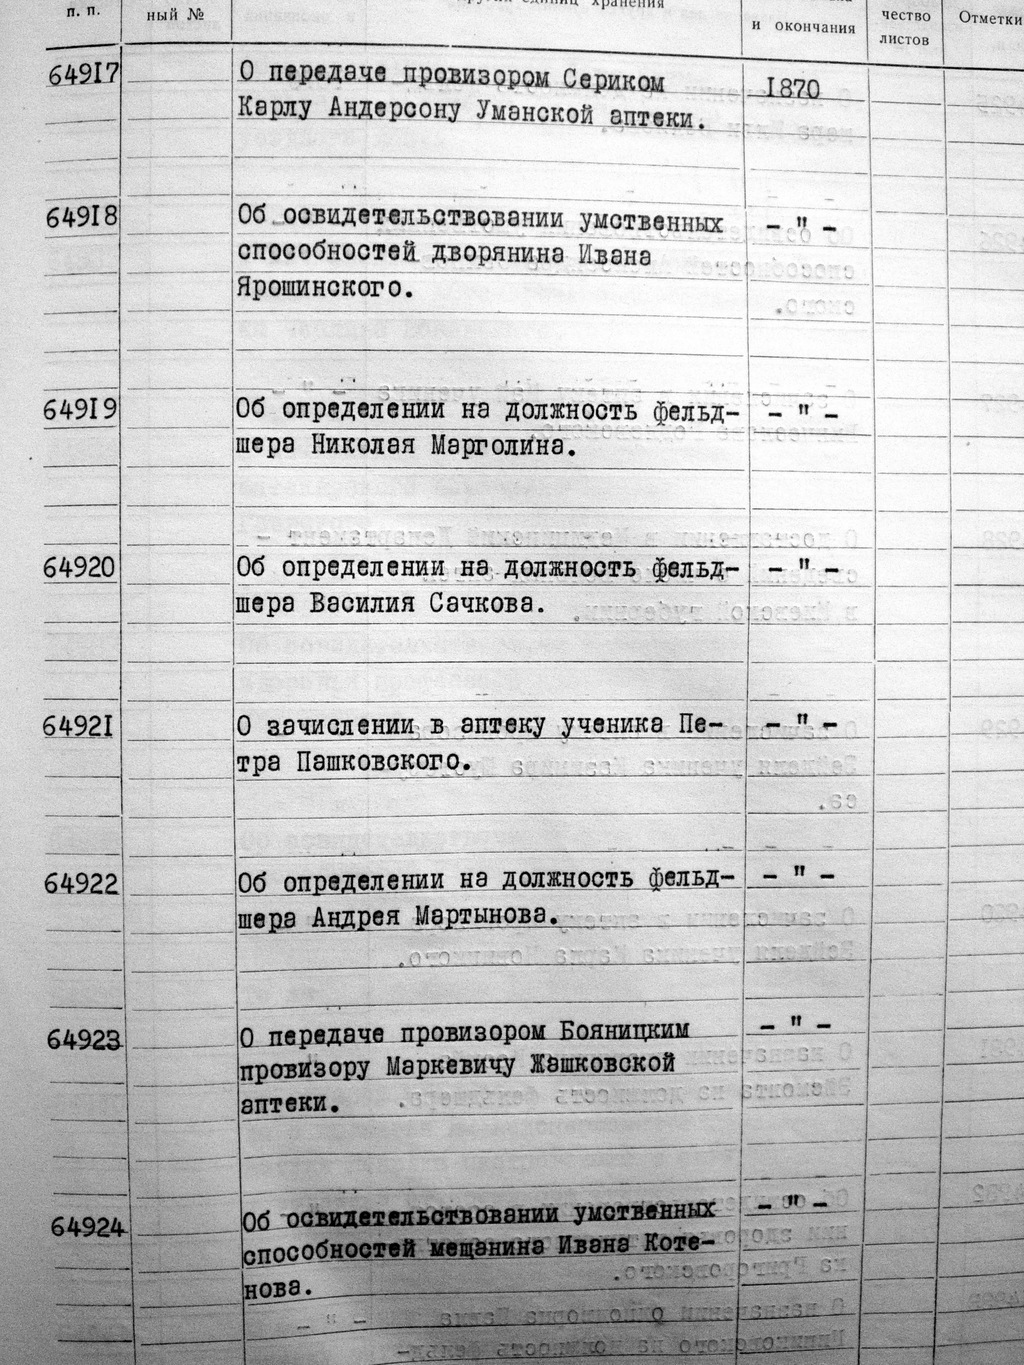 п. п.
ный №
других единиц хранения
и окончания
чество
листов
Отметки
64917
О передаче провизором Сериком
1870
Карлу Андерсону Уманской аптеки.
64918
Об освидетельствовании умственных
- " -
способностей дворянина Ивана
Ярошинского.
64919
Об определении на должность фельд-
- " -
шера Николая Марголина.
64920
Об определении на должность фельд-
- " -
шера Василия Сачкова.
64921
О зачислении в аптеку ученика Пе-
- " -
тра Пашковского.
64922
Об определении на должность фельд-
- " -
шера Андрея Мартынова.
64923
О передаче провизором Бояницким
- " -
провизору Маркевичу Жашковской
аптеки.
64924
Об освидетельствовании умственных
- " -
способностей мещанина Ивана Коте-
нова.